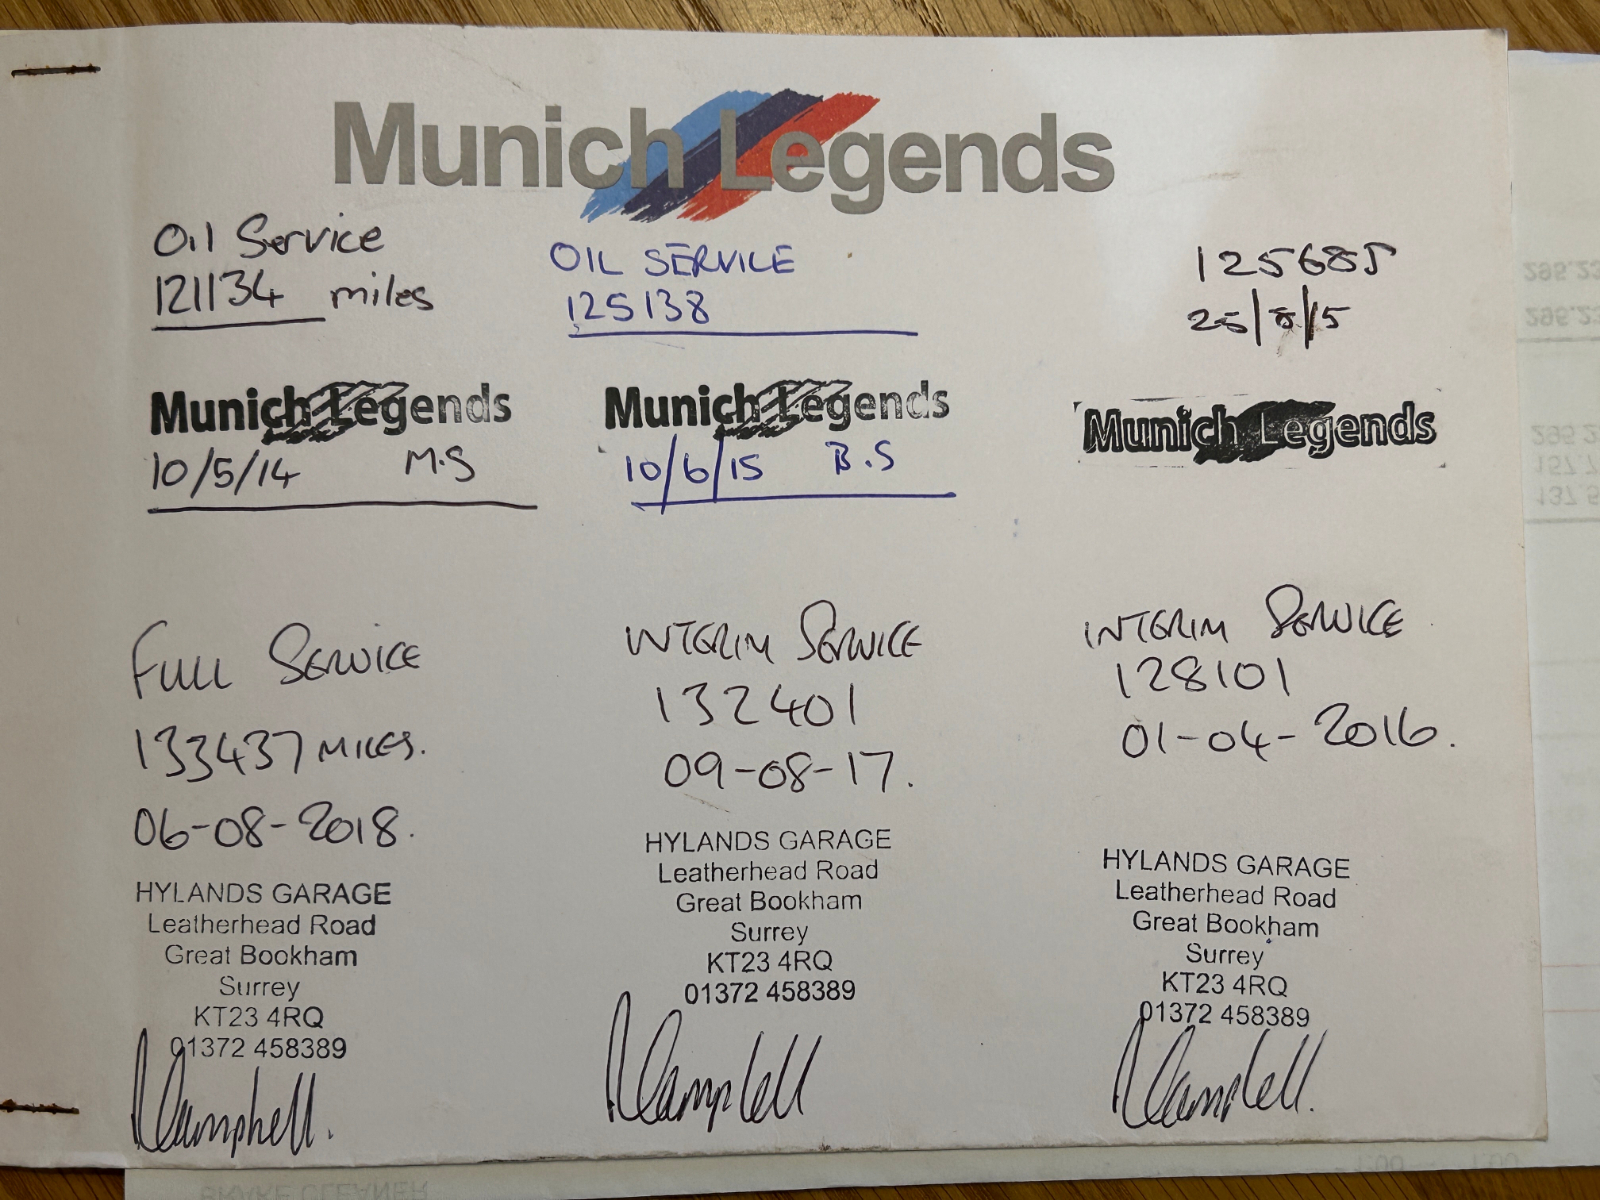 Munich Legends
Oil Service
121134 miles
Munich Legends
10/5/14 M.S
OIL SERVICE
125138
Munich Legends
10/6/15 B.S
125685
25/8/15
Munich Legends
FULL SERVICE
133437 MILES.
06-08-2018.
HYLANDS GARAGE
Leatherhead Road
Great Bookham
Surrey
KT23 4RQ
01372 458389
INTERIM SERVICE
132401
09-08-17.
HYLANDS GARAGE
Leatherhead Road
Great Bookham
Surrey
KT23 4RQ
01372 458389
INTERIM SERVICE
128101
01-04-2016.
HYLANDS GARAGE
Leatherhead Road
Great Bookham
Surrey
KT23 4RQ
01372 458389
295.23
295.23
BRAKE CLEANER
1.00 1.00